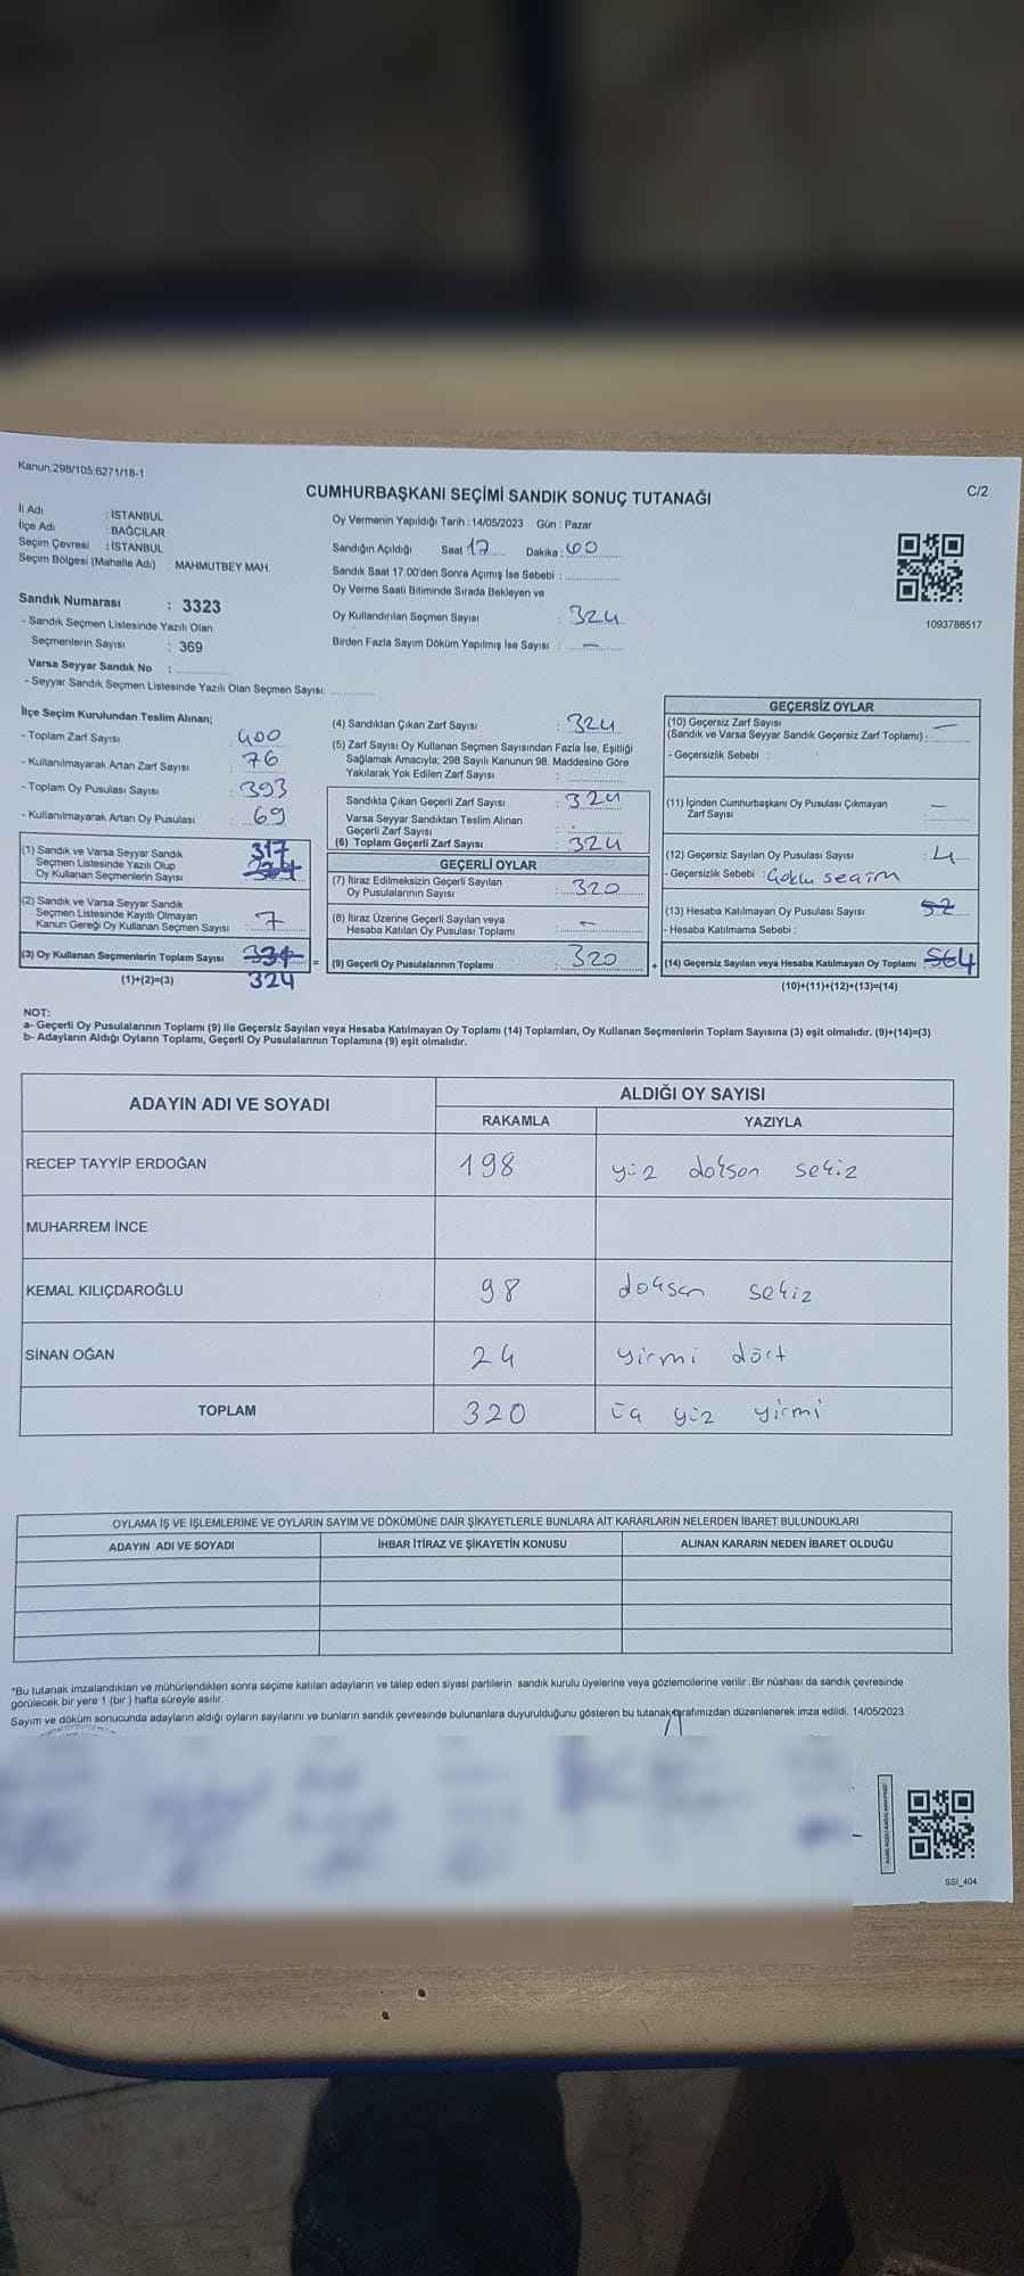 Kanun:298/105;6271/18-1
C/2
CUMHURBAŞKANI SEÇİMİ SANDIK SONUÇ TUTANAĞI
İl Adı : İSTANBUL
İlçe Adı : BAĞCILAR
Seçim Çevresi : İSTANBUL
Seçim Bölgesi (Mahalle Adı) MAHMUTBEY MAH.
Sandık Numarası : 3323
- Sandık Seçmen Listesinde Yazılı Olan
Seçmenlerin Sayısı : 369
Varsa Seyyar Sandık No :
- Seyyar Sandık Seçmen Listesinde Yazılı Olan Seçmen Sayısı:
Oy Vermenin Yapıldığı Tarih : 14/05/2023 Gün : Pazar
Sandığın Açıldığı Saat 17 Dakika : 00
Sandık Saat 17.00'den Sonra Açılmış İse Sebebi :
Oy Verme Saati Bitiminde Sırada Bekleyen ve
Oy Kullandırılan Seçmen Sayısı : 324
Birden Fazla Sayım Döküm Yapılmış İse Sayısı : —
1093786517
İlçe Seçim Kurulundan Teslim Alınan;
- Toplam Zarf Sayısı : 400
- Kullanılmayarak Artan Zarf Sayısı : 76
- Toplam Oy Pusulası Sayısı : 393
- Kullanılmayarak Artan Oy Pusulası : 69
(1) Sandık ve Varsa Seyyar Sandık 317
Seçmen Listesinde Yazılı Olup
Oy Kullanan Seçmenlerin Sayısı
(2) Sandık ve Varsa Seyyar Sandık
Seçmen Listesinde Kayıtlı Olmayan
Kanun Gereği Oy Kullanan Seçmen Sayısı : 7
(3) Oy Kullanan Seçmenlerin Toplam Sayısı 331 =
(1)+(2)=(3) 324
(4) Sandıktan Çıkan Zarf Sayısı : 324
(5) Zarf Sayısı Oy Kullanan Seçmen Sayısından Fazla İse, Eşitliği
Sağlamak Amacıyla; 298 Sayılı Kanunun 98. Maddesine Göre
Yakılarak Yok Edilen Zarf Sayısı :
Sandıkta Çıkan Geçerli Zarf Sayısı : 324
Varsa Seyyar Sandıktan Teslim Alınan
Geçerli Zarf Sayısı :
(6) Toplam Geçerli Zarf Sayısı : 324
GEÇERLİ OYLAR
(7) İtiraz Edilmeksizin Geçerli Sayılan
Oy Pusulalarının Sayısı : 320
(8) İtiraz Üzerine Geçerli Sayılan veya
Hesaba Katılan Oy Pusulası Toplamı : —
(9) Geçerli Oy Pusulalarının Toplamı : 320 +
GEÇERSİZ OYLAR
(10) Geçersiz Zarf Sayısı
(Sandık ve Varsa Seyyar Sandık Geçersiz Zarf Toplamı) : —
- Geçersizlik Sebebi :
(11) İçinden Cumhurbaşkanı Oy Pusulası Çıkmayan
Zarf Sayısı : —
(12) Geçersiz Sayılan Oy Pusulası Sayısı : 4
- Geçersizlik Sebebi : Çoklu seçim
(13) Hesaba Katılmayan Oy Pusulası Sayısı 52
- Hesaba Katılmama Sebebi :
(14) Geçersiz Sayılan veya Hesaba Katılmayan Oy Toplamı 564
(10)+(11)+(12)+(13)=(14)
NOT:
a- Geçerli Oy Pusulalarının Toplamı (9) ile Geçersiz Sayılan veya Hesaba Katılmayan Oy Toplamı (14) Toplamları, Oy Kullanan Seçmenlerin Toplam Sayısına (3) eşit olmalıdır. (9)+(14)=(3)
b- Adayların Aldığı Oyların Toplamı, Geçerli Oy Pusulalarının Toplamına (9) eşit olmalıdır.
ADAYIN ADI VE SOYADI
ALDIĞI OY SAYISI
RAKAMLA YAZIYLA
RECEP TAYYİP ERDOĞAN 198 yüz doksan sekiz
MUHARREM İNCE
KEMAL KILIÇDAROĞLU 98 doksan sekiz
SİNAN OĞAN 24 yirmi dört
TOPLAM 320 üç yüz yirmi
OYLAMA İŞ VE İŞLEMLERİNE VE OYLARIN SAYIM VE DÖKÜMÜNE DAİR ŞİKAYETLERLE BUNLARA AİT KARARLARIN NELERDEN İBARET BULUNDUKLARI
ADAYIN ADI VE SOYADI İHBAR İTİRAZ VE ŞİKAYETİN KONUSU ALINAN KARARIN NEDEN İBARET OLDUĞU
*Bu tutanak imzalandıktan ve mühürlendikten sonra seçime katılan adayların ve talep eden siyasi partilerin sandık kurulu üyelerine veya gözlemcilerine verilir. Bir nüshası da sandık çevresinde
görülecek bir yere 1 (bir) hafta süreyle asılır.
Sayım ve döküm sonucunda adayların aldığı oyların sayılarını ve bunların sandık çevresinde bulunanlara duyurulduğunu gösteren bu tutanak tarafımızdan düzenlenerek imza edildi. 14/05/2023
SSI_404